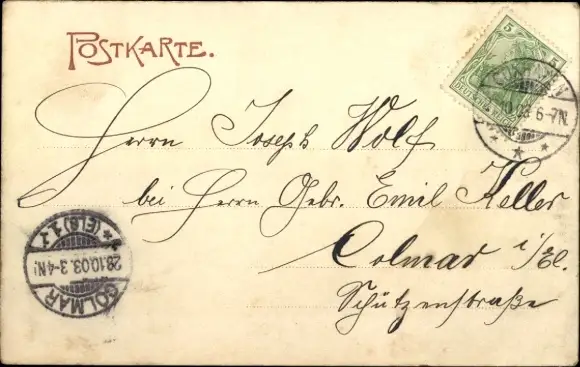 POSTKARTE.
5 5
DEUTSCHES REICH
10 03 6-7N.
Herrn Joseph Wolf
bei Herrn Gebr. Emil Keller
Colmar i/El.
Schützenstraße
COLMAR
28.10.03. 3-4N.
* (Els) 1. *